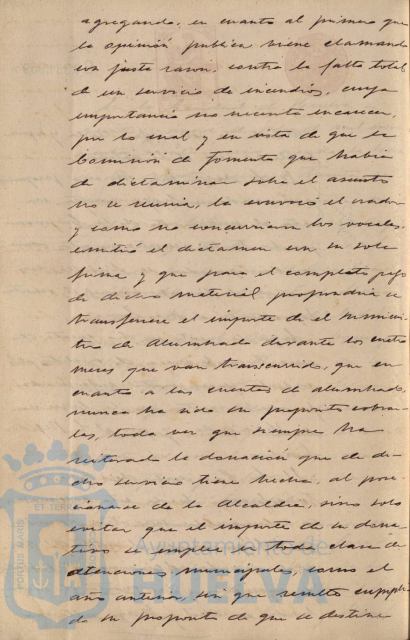 agregando, en cuanto al primero que
la opinión publica viene clamando
con justa razon, contra la falta total
de un servicio de incendios, cuya
importancia no necesita encarecer,
por lo cual y en vista de que la
Comisión de Fomento que habia
de dictaminar sobre el asunto
no se reunia, la convocó el orador
y como no concurrieran los vocales,
emitió el dictamen con su sola
firma y que para el completo pago
de dicho material propondria se
transfiriese el importe de el suminis-
tro de Alumbrado durante los cuatro
meres que van transcurrido, que en
cuanto a las cuentas de alumbrado,
nunca ha sido su proposito cobrar-
las, toda vez que siempre ha
reiterado la donación que de di-
cho servicio tiene hecha, al pose-
cionarse de la Alcaldia, sino solo
evitar que el importe de su dona-
tivo se emplee en otra clase de
atenciones municipales, como el
año anterior sin que resulte cumpli-
do su proposito de que se destine
PORTUS MARIS
ET TERRÆ
Ayuntamiento de
HUELVA